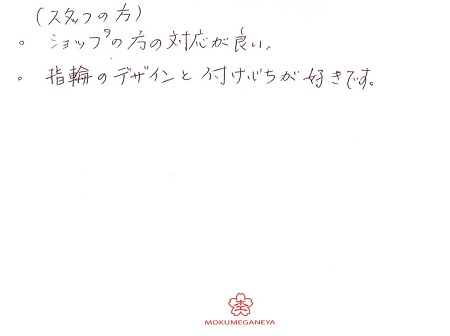 (スタッフの方)
。ショップの方の対応が良い。
。指輪のデザインと付け心ちが好きです。
MOKUMEGANEYA